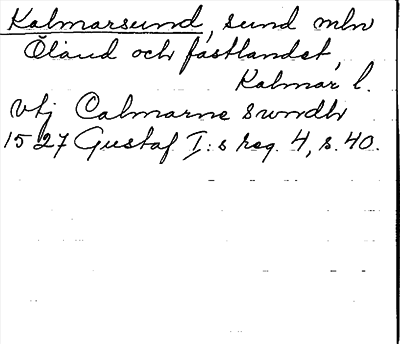 Kalmarsund, sund mln
Öland och fastlandet,
Kalmar l.
vtj Calmarne swndh
1527 Gustaf I:s reg. 4, s. 40.